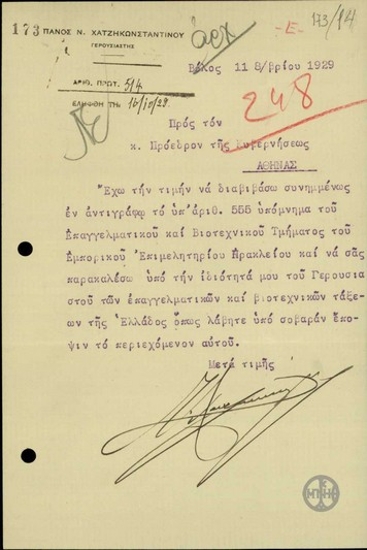 173 ΠΑΝΟΣ Ν. ΧΑΤΖΗΚΩΝΣΤΑΝΤΙΝΟΥ
ΓΕΡΟΥΣΙΑΣΤΗΣ
-Ε- 173/14
Βόλος 11 8/βρίου 1929
ΑΡΙΘ. ΠΡΩΤ. 514
ΕΛΗΦΘΗ ΤΗι 16/10/29
248
Πρός τόν
κ. Πρόεδρον τῆς Κυβερνήσεως
ΑΘΗΝΑΣ
Ἔχω τήν τιμήν νά διαβιβάσω συνημμένως
ἐν ἀντιγράφῳ τό ὑπ' ἀριθ. 555 ὑπόμνημα τοῦ
Ἐπαγγελματικοῦ καί Βιοτεχνικοῦ Τμήματος τοῦ
Ἐμπορικοῦ Ἐπιμελητηρίου Ἡρακλείου καί νά σᾶς
παρακαλέσω ὑπό τήν ἰδιότητά μου τοῦ Γερουσια
στοῦ τῶν ἐπαγγελματικῶν καί βιοτεχνικῶν τάξε-
ων τῆς Ἑλλάδος ὅπως λάβητε ὑπό σοβαράν ἔπο-
ψιν τό περιεχόμενον αὐτοῦ.
Μετά τιμῆς